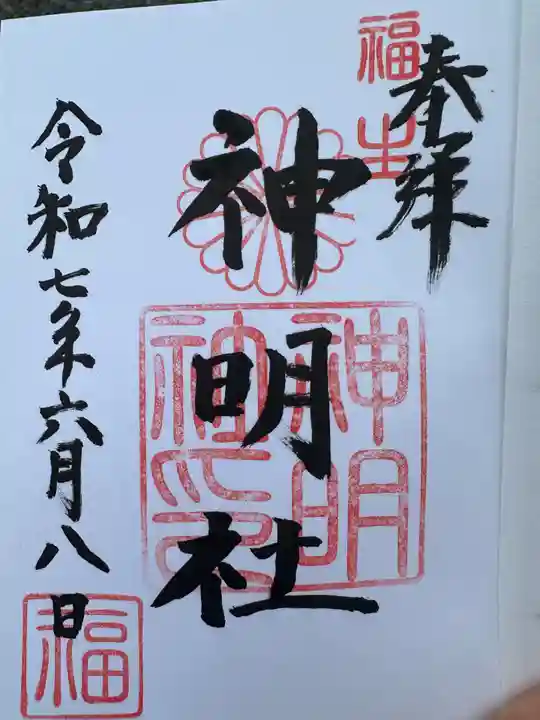 奉拝
福生
神明社
神明社之印
令和七年六月八日
福